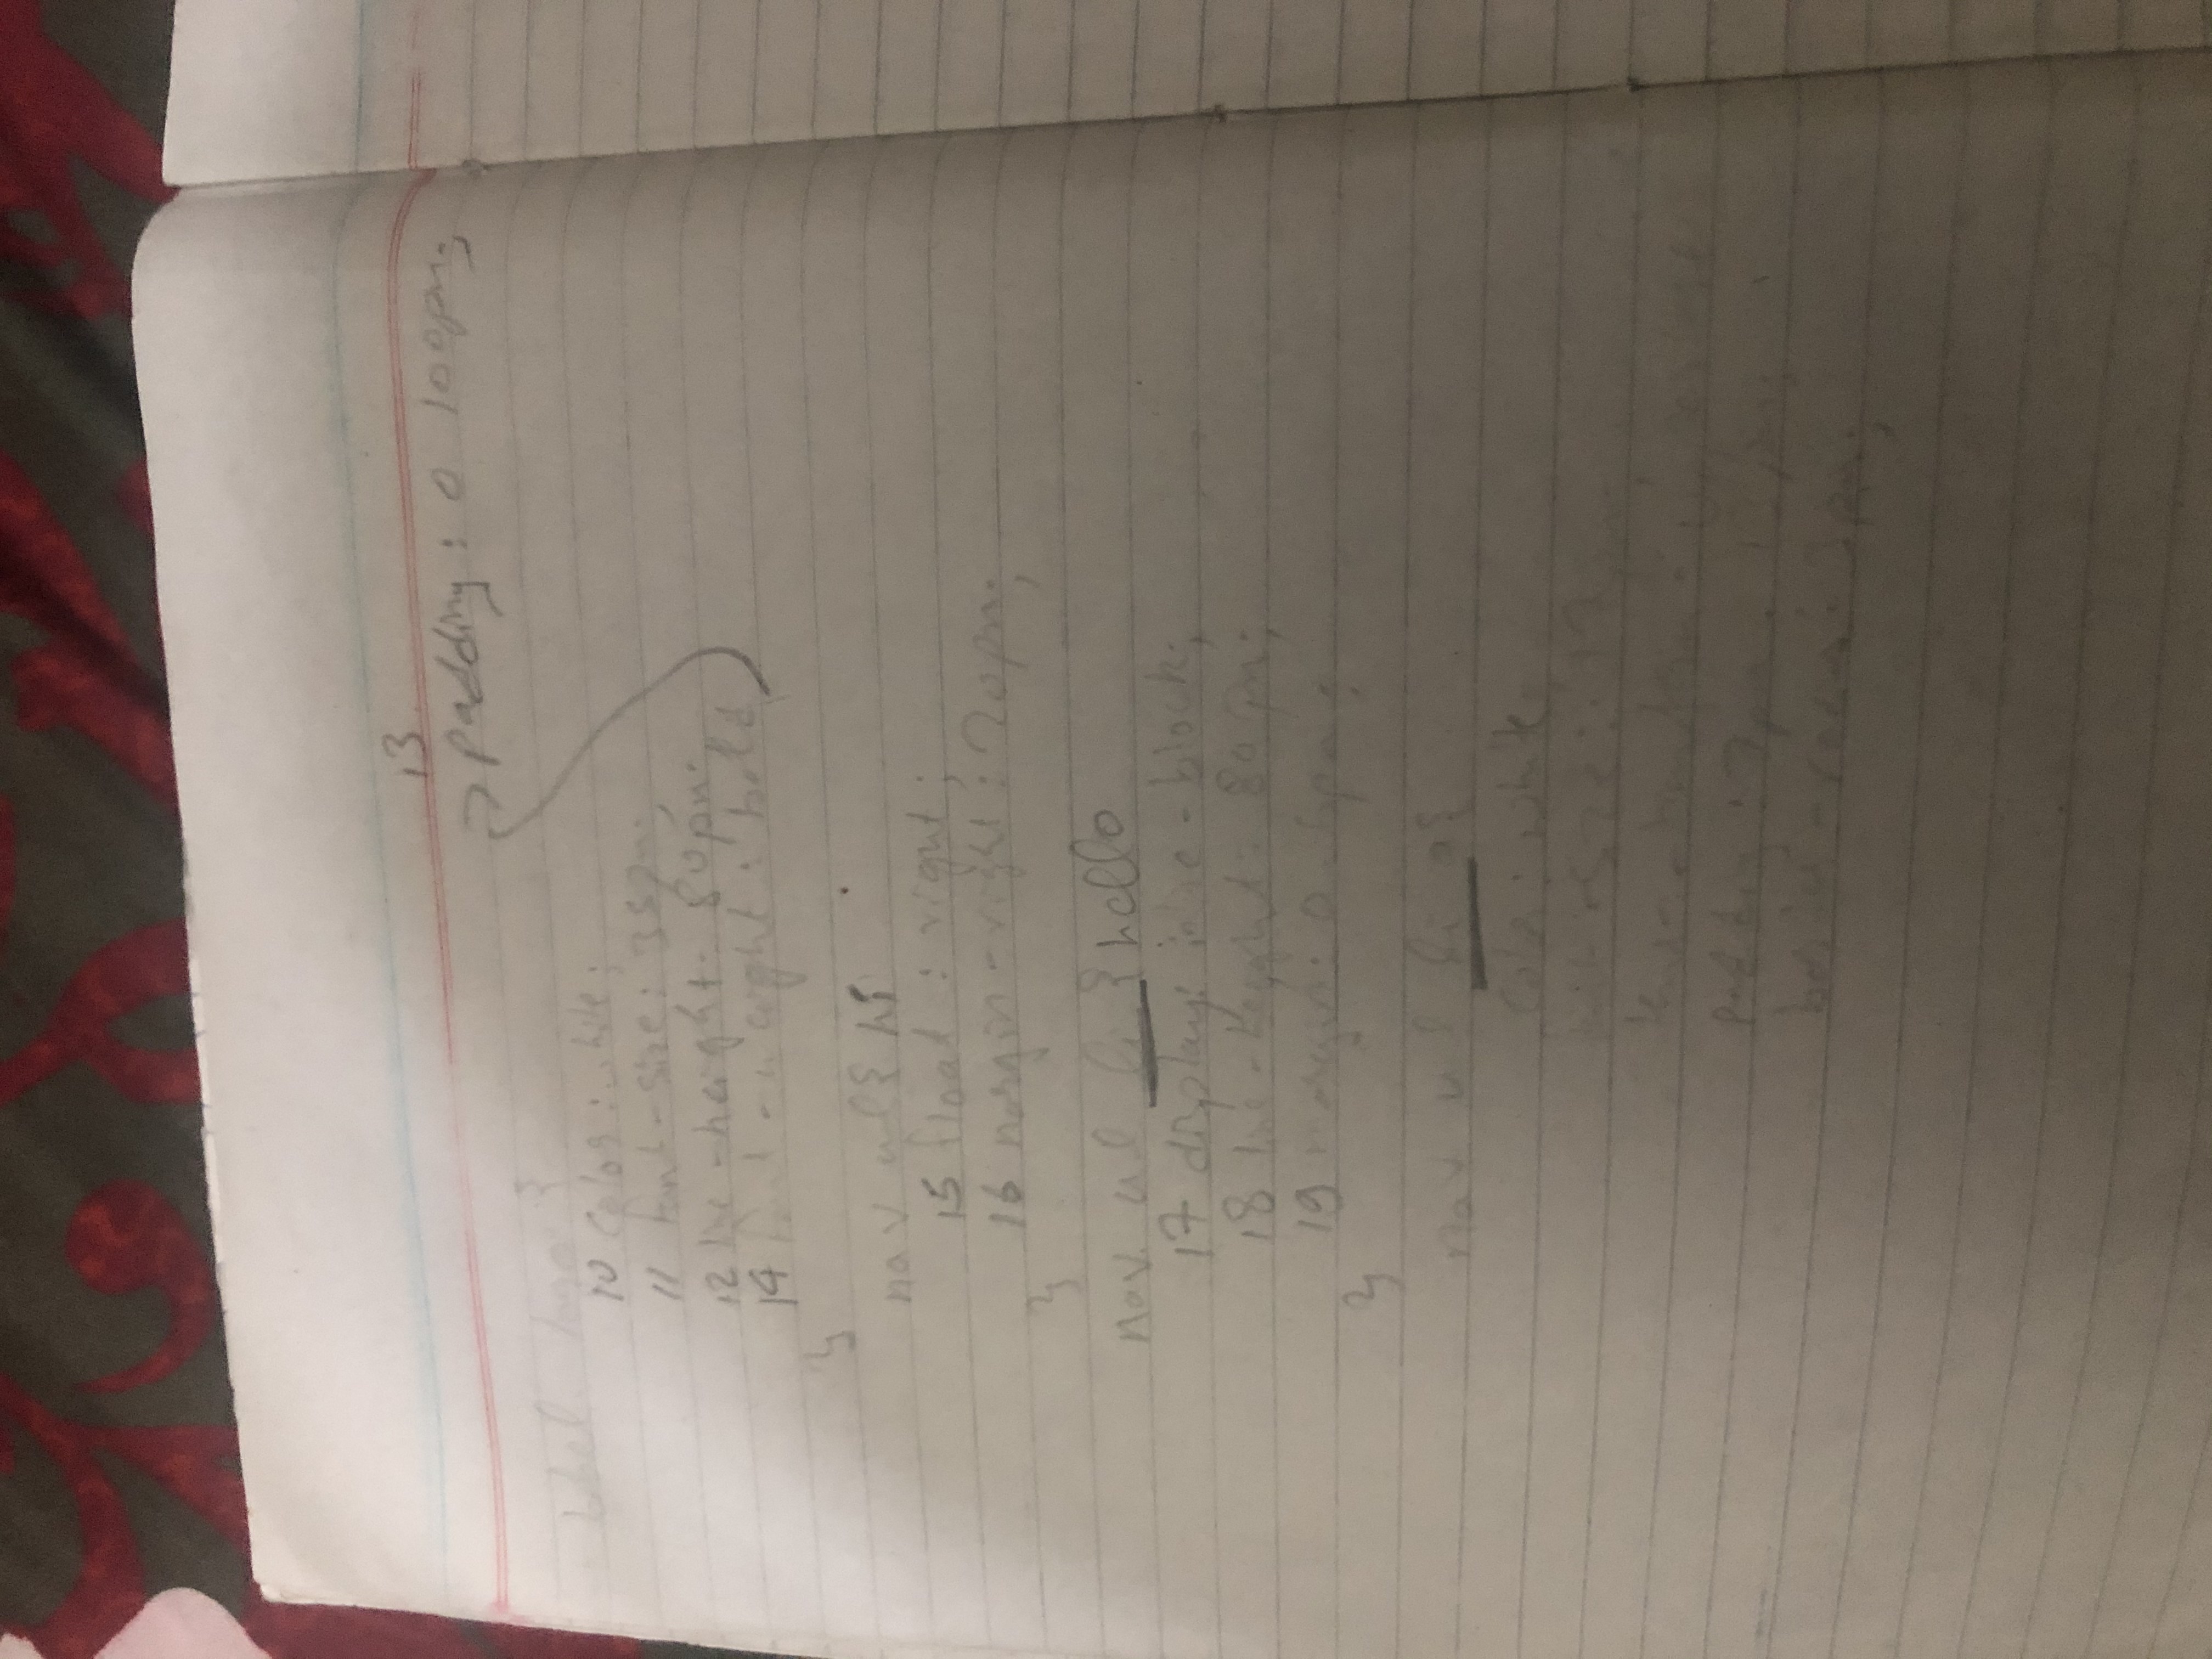 13
padding : 0 100pn;
label. logo {
10 color : white;
11 font-size : 35pn;
12 line-height: 80pn;
14 font-weight : bold
}
nav ul{ hi
15 float : right;
16 margin-right : 20pn;
}
nav. ul li { hello
17 display: inline-block;
18 line-height: 80pn;
19 margin: 0
}
nav ul li a{
color : white;
padding : 7pn
border-radius: 3pn;